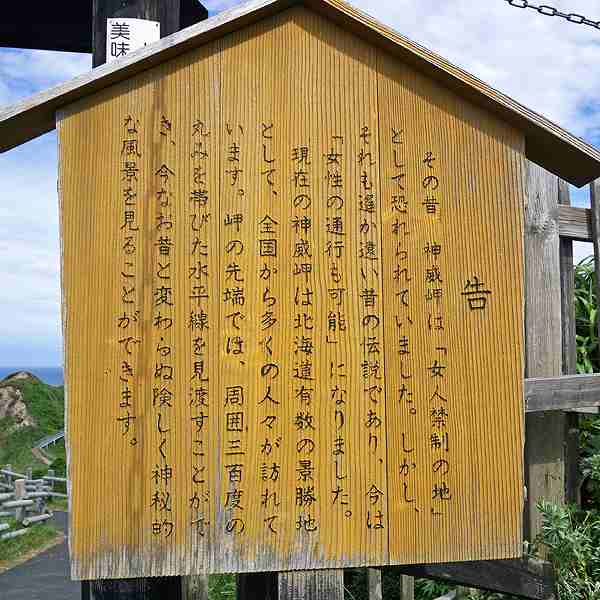 告
その昔 神威岬は「女人禁制の地」
として恐れられていました。しかし、
それも遥か遠い昔の伝説であり、今は
「女性の通行も可能」になりました。
現在の神威岬は北海道有数の景勝地
として、全国から多くの人々が訪れて
います。岬の先端では、周囲三百度の
丸みを帯びた水平線を見渡すことがで
き、今なお昔と変わらぬ険しく神秘的
な風景を見ることができます。
美味